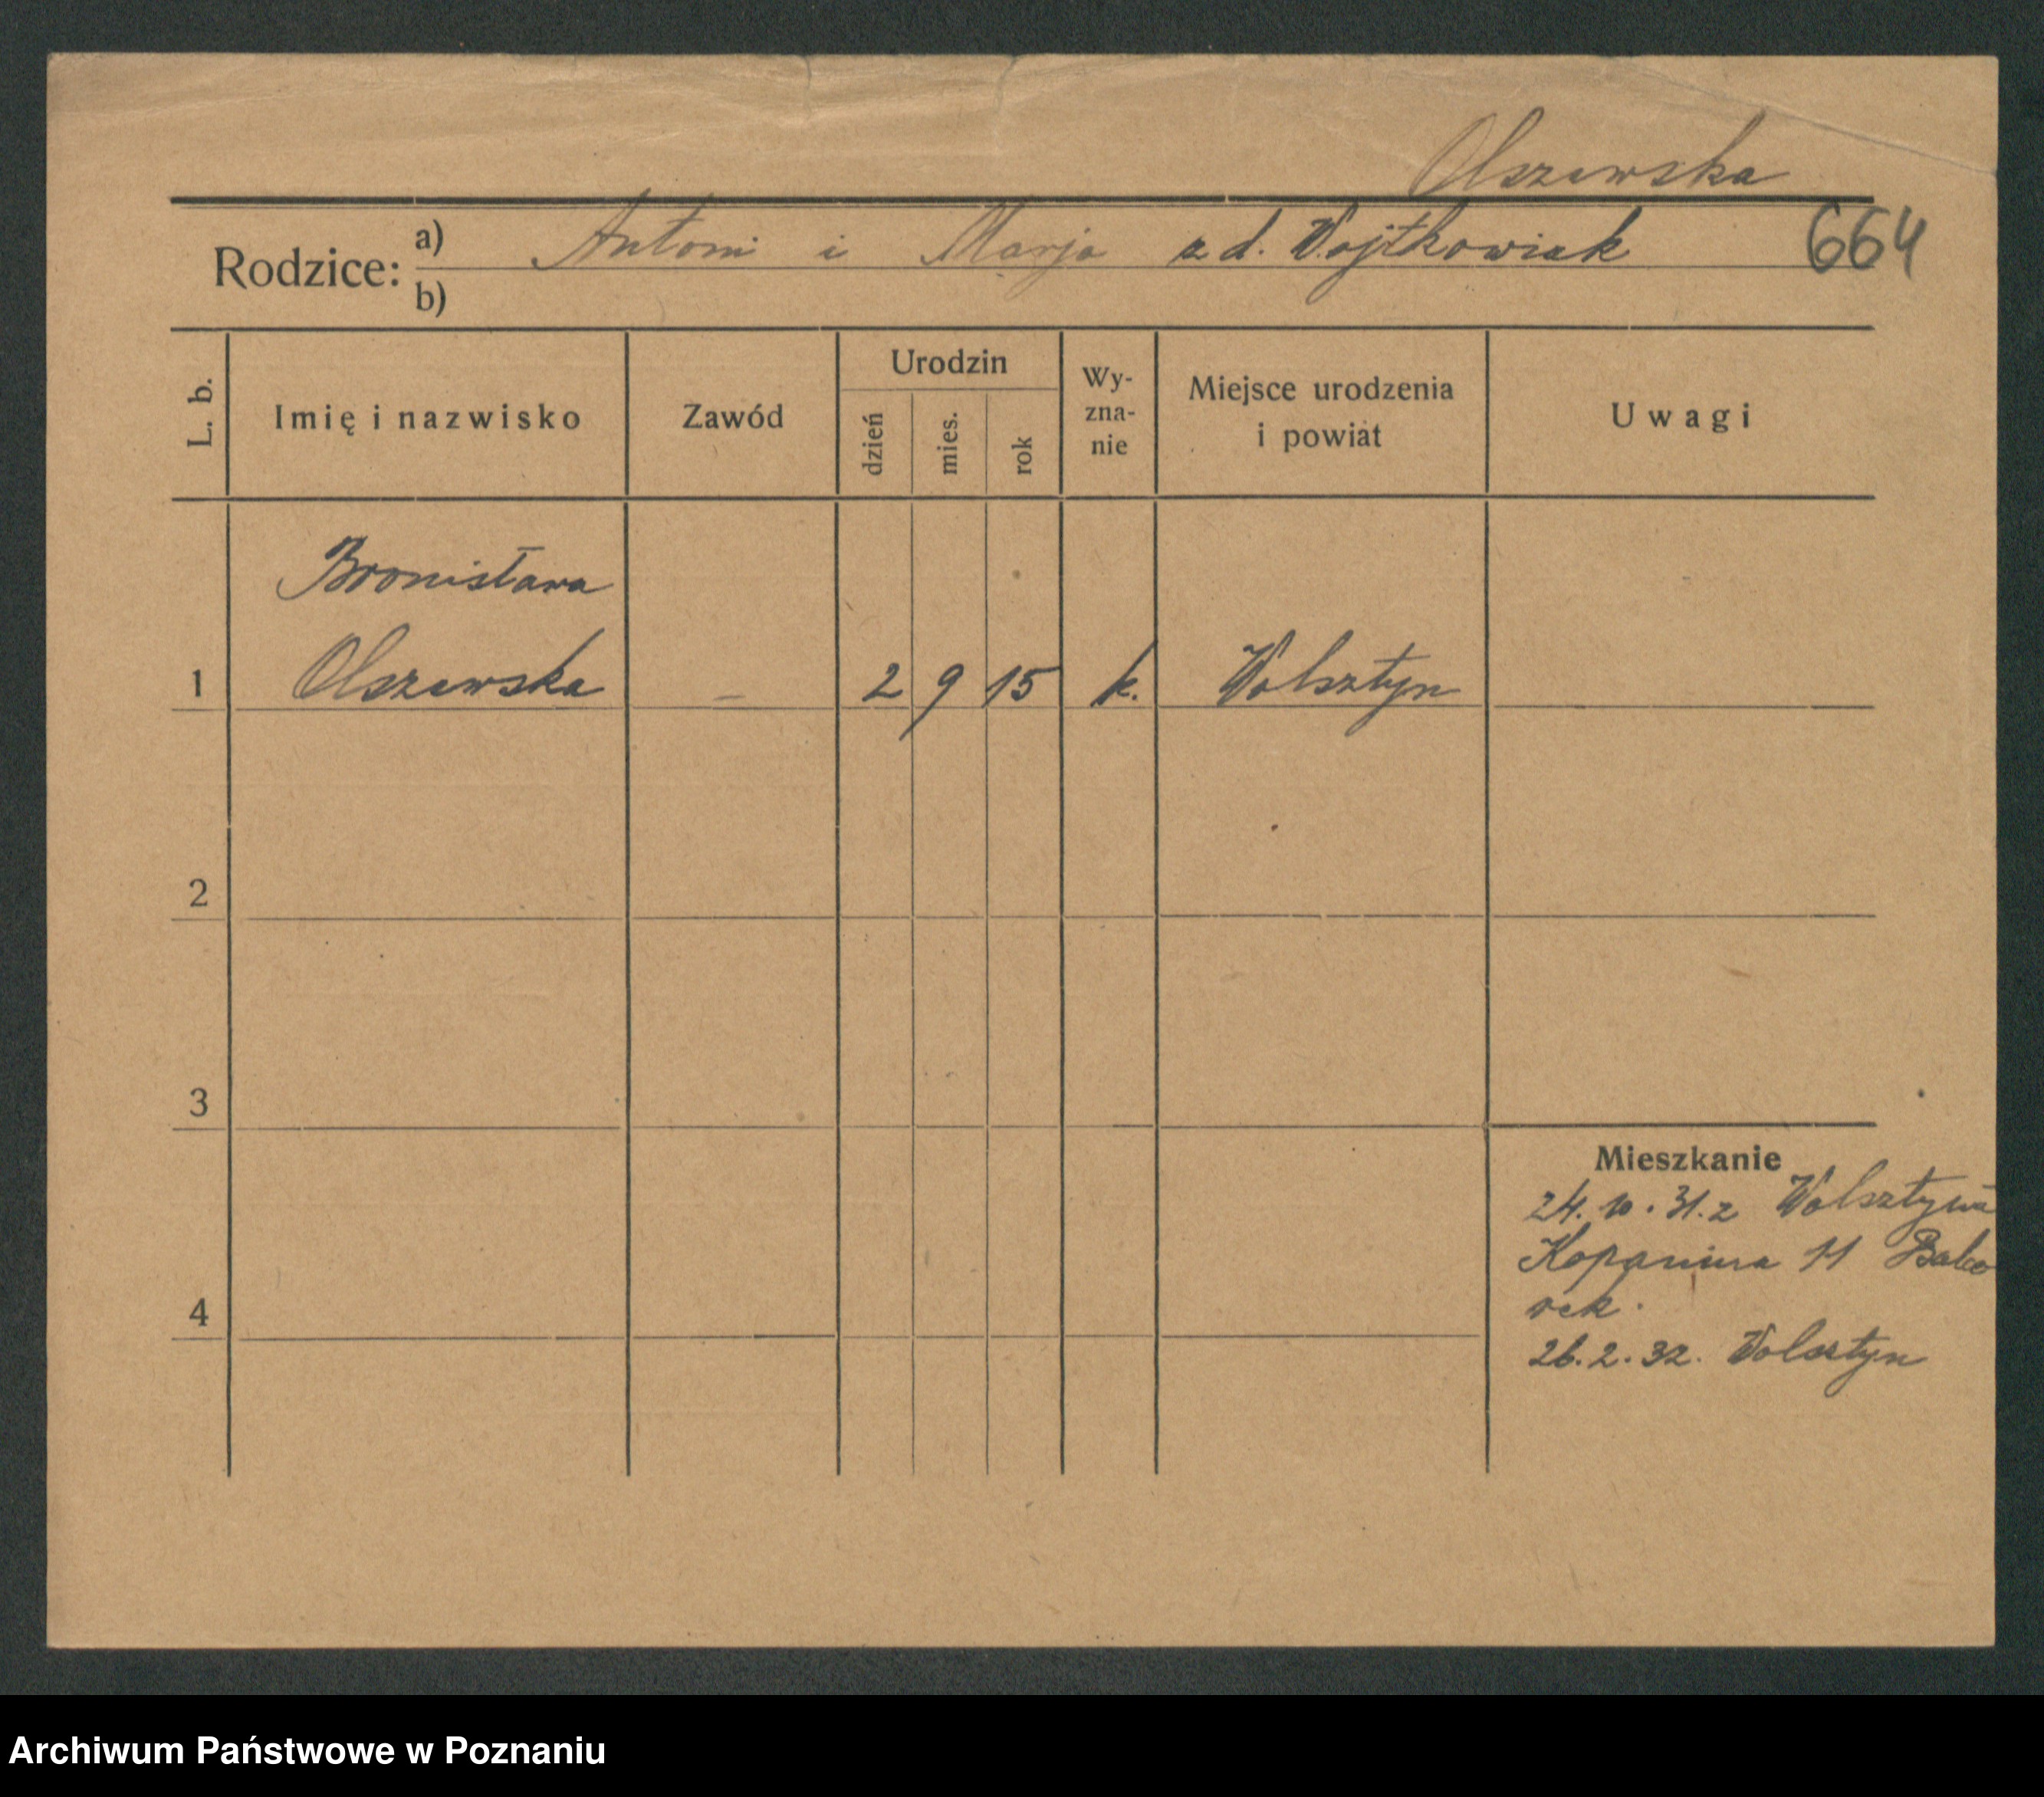 Olszewska
Rodzice: a) Antoni i Marja zd. Wojtkowiak 664
b)
L. b.
Imię i nazwisko
Zawód
Urodzin
dzień
mies.
rok
Wy-
zna-
nie
Miejsce urodzenia
i powiat
Uwagi
Bronisława
1 Olszewska – 2 9 15 k. Wolsztyn
2
3
Mieszkanie
24. 10. 31. z Wolsztyna
Kopanina 11
4
rek.
26. 2. 32. Wolsztyn
Archiwum Państwowe w Poznaniu